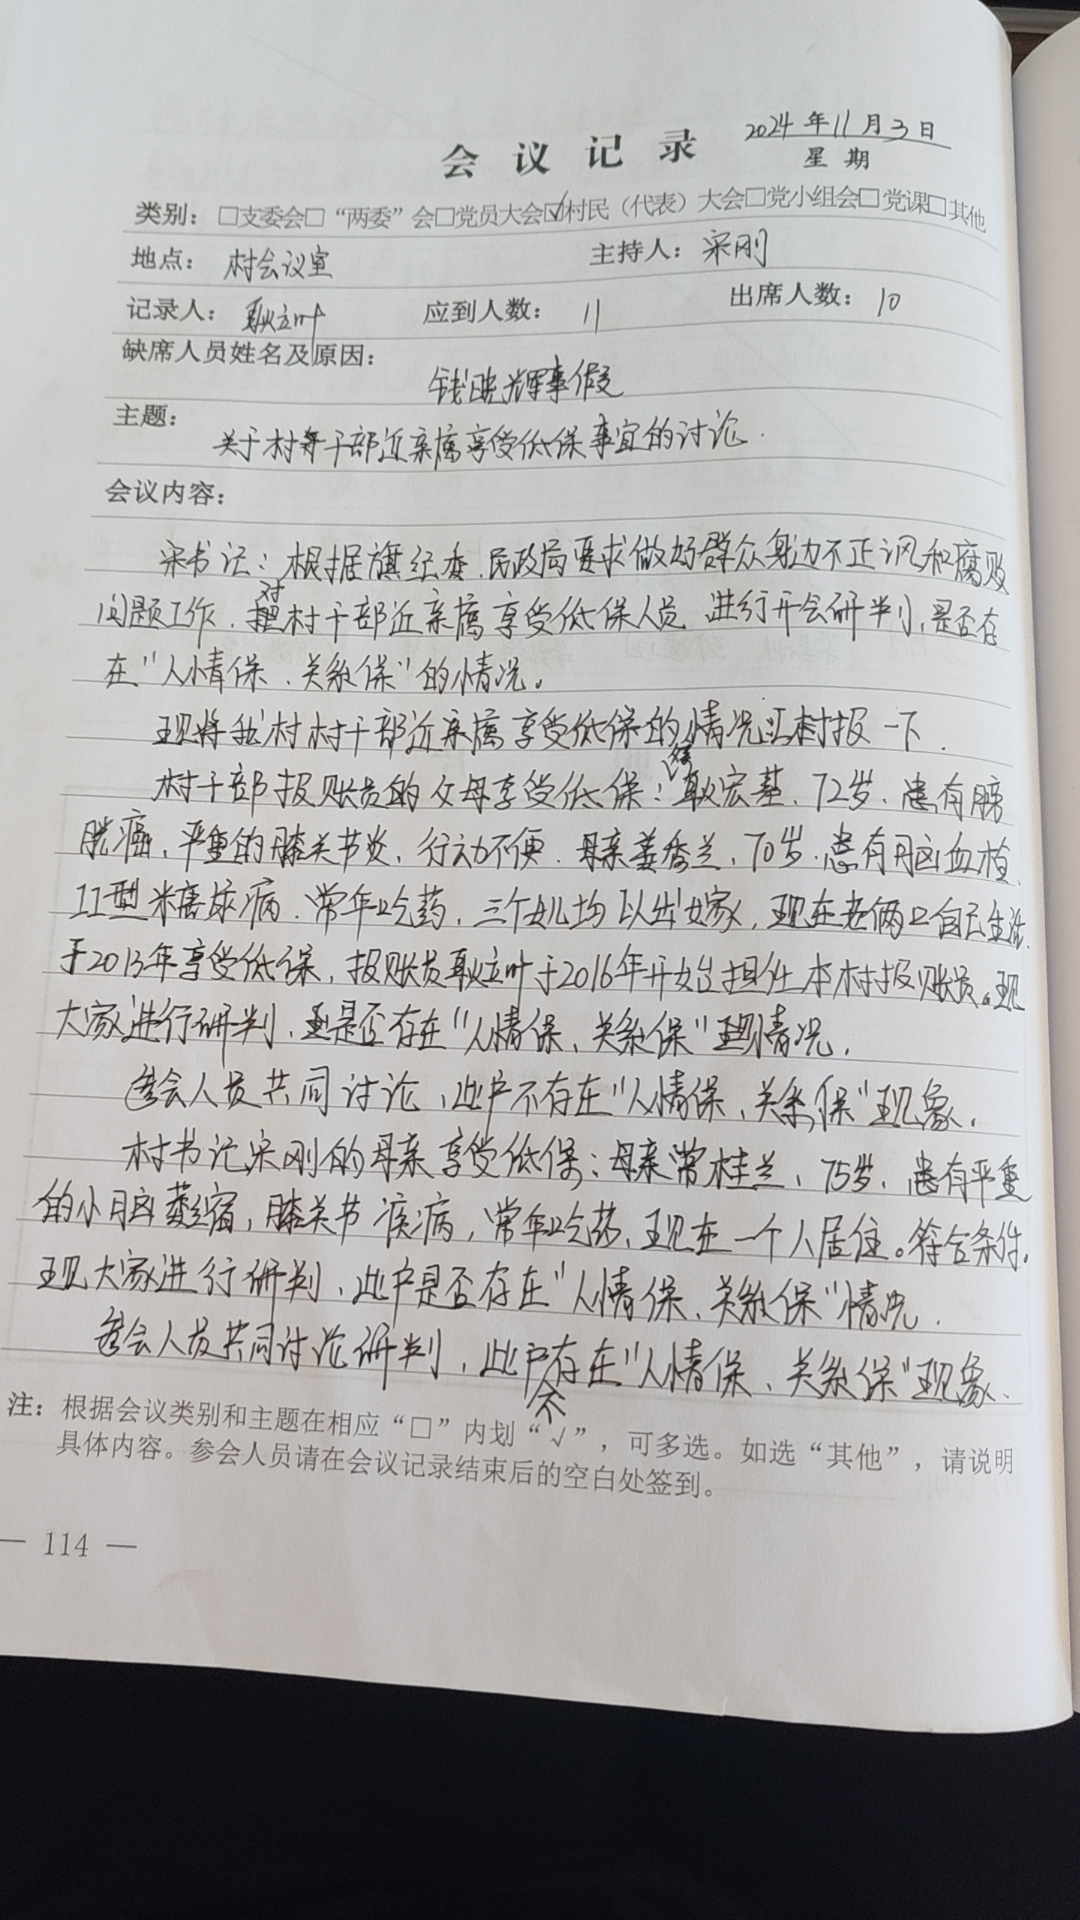 2024年11月3日
会议记录
星期
类别：□支委会□“两委”会□党员大会☑村民（代表）大会□党小组会□党课□其他
地点：村会议室 主持人：宋刚
记录人：耿立叶 应到人数：11 出席人数：10
缺席人员姓名及原因：
钱晓辉事假
主题：
关于村干部近亲属享受低保事宜的讨论.
会议内容：
宋书记：根据旗纪委、民政局要求做好群众身边不正之风和腐败
问题工作、对村干部近亲属享受低保人员进行开会研判，是否存
在“人情保、关系保”的情况。
现将我村村干部近亲属享受低保的情况汇报一下.
村干部报账员的父母享受低保：父亲耿宏基、72岁、患有膀
胱癌、严重的膝关节炎、行动不便、母亲姜秀兰、70岁、患有脑血栓、
II型糖尿病、常年吃药，三个女儿均以出嫁，现在老俩口自己生活.
于2013年享受低保，报账员耿立叶于2016年开始担任本村报账员。现
大家进行研判，是否存在“人情保、关系保”情况.
参会人员共同讨论，此户不存在“人情保、关系保”现象.
村书记宋刚的母亲享受低保：母亲常桂兰、75岁、患有严重
的小脑萎缩，膝关节疾病，常年吃药、现在一个人居住。符合条件.
现大家进行研判，此户是否存在“人情保、关系保”情况.
参会人员共同讨论研判，此户不存在“人情保、关系保”现象、
注：根据会议类别和主题在相应“□”内划“√”，可多选。如选“其他”，请说明
具体内容。参会人员请在会议记录结束后的空白处签到。
— 114 —